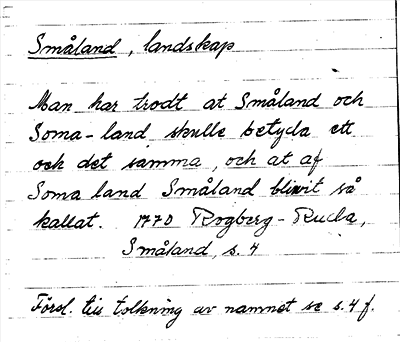 Småland, landskap
Man har trodt at Småland och
Soma-land skulle betyda ett
och det samma, och at af
Soma land Småland blivit så
kallat. 1770 Rogberg-Ruda,
Småland, s. 4
Försl. till tolkning av namnet se s. 4 f.